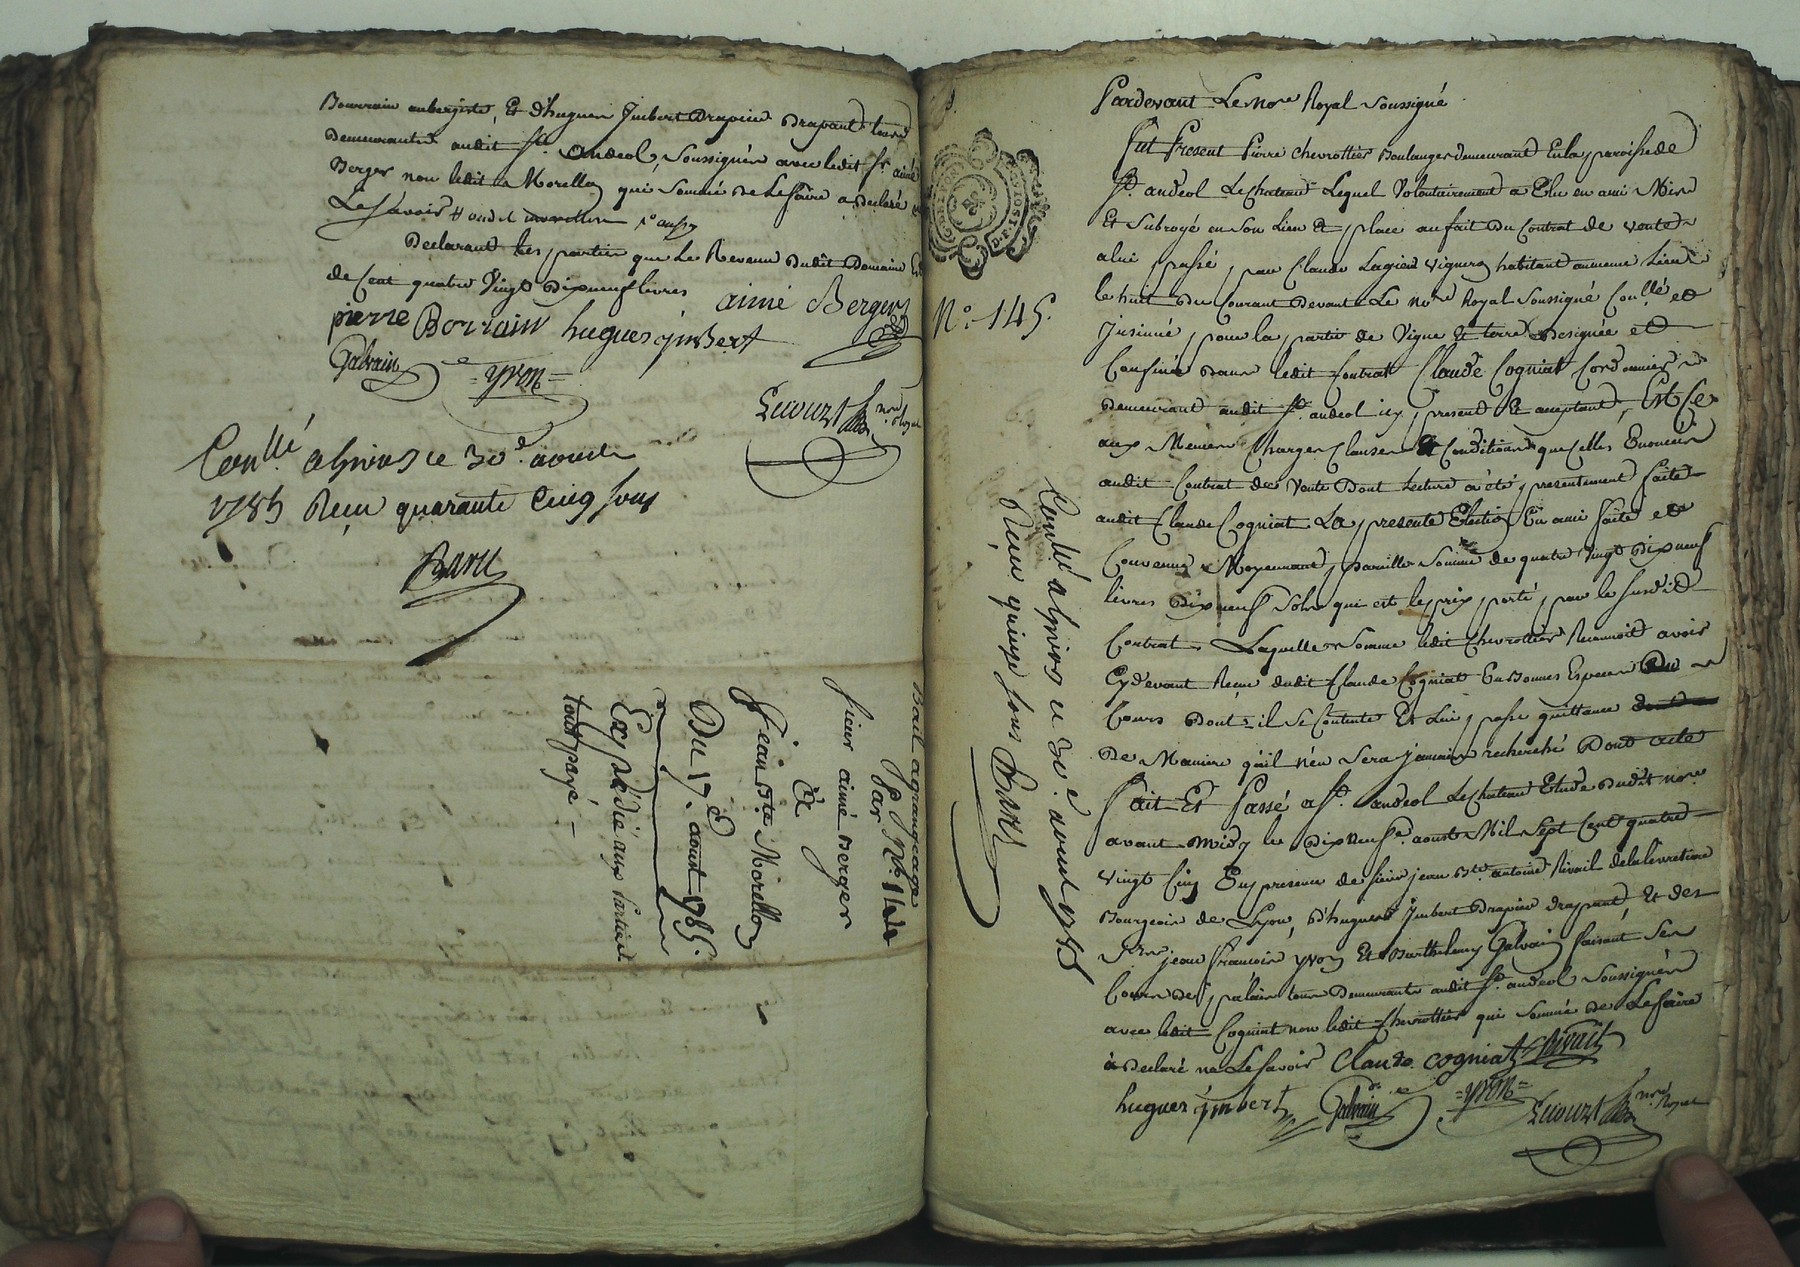 Bourrain aubergiste, Et d'hugues Imbert Drapier Drapant tous
Demeurants audit St. andeol, Soussignés avec ledit Sr. aimé
Berger non ledit Morellon qui Sommé de Le faire a Declaré
Le Savoir
Declarant les parties que Le Revenu Dudit Domaine Est
de Cent quatre Vingt Dix neuf livres
aimé Berger
pierre Borrain hugues jmbert
Galvain
=yvon=
Lecourt nore Royal
Conllé a givors ce 30e. aoust
1785 Reçu quarante Cinq sous
Bail a grangeage
Par
sieur aimé Berger
à
Jean Bte Morellon
Du 17e. aoust 1785.
Expédié aux Parties
tout payé -
Pardevant Le nore Royal Soussigné
Fut Present Pierre Chevrottier Boulanger demeurant En la paroisse de
St. andeol Le chateau Lequel Volontairement a Elu en ami Mis
Et Subrogé en Son Lieu Et place au fait Du Contrat de vente
a lui passé par Claude Lagier Vigneron habitant au meme Lieu
le huit Du Courant Devant Le nore Royal Soussigné Conllé et
Insinué, pour la partie de Vigne Et terre Designée et
Confinée Dans ledit Contrat Claude Cogniat Cordonnier
Demeurant audit St. andeol icy present Et acceptant, Est Ce
aux Memes Charges Clauses Et Conditions que Celles Enoncées
audit Contrat de Vente Dont Lecture a été presentement faite
audit Claude Cogniat La presente Election En ami faite et
Convenue Moyennant pareille Somme de quatre Vingt Dix neuf
livres Dix neuf Sols qui est le prix porté par le Susdit
Contrat, Laquelle Somme ledit Chevrottier Reconnoit avoir
Cy devant Reçue dudit Claude Cogniat En Bonnes Especes Du
Cours Dont il Se Contente Et Lui passe quittance
De Maniere qu'il n'en Sera jamais recherché Dont acte
Fait Et Passé a St. andeol Le chateau Etude Dudit nore
avant Midy le Dix neufe. aoust Mil Sept Cent quatre
Vingt Cinq En presence de sieur jean Bte antoine Rivail de la levretiere
Bourgeois de Lyon, d'hugues Imbert Drapier drapant, Et des
Srs jean francois yvon Et Barthelemy Galvain faisant Ses
Cours de palais tous Demeurants audit St. andeol Soussignés
avec ledit Cogniat non ledit Chevrottier qui Sommé de Le faire
à Declaré ne Le Savoir Claude cogniat Rivail
hugues jmbert Galvain =yvon= Lecourt nore Royal
No. 145.
Conllé a givors ce 30e. aoust 1785
Reçu quinze sous